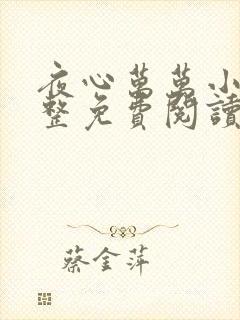 夜心萬萬小
整免費閱讀
蔡金萍